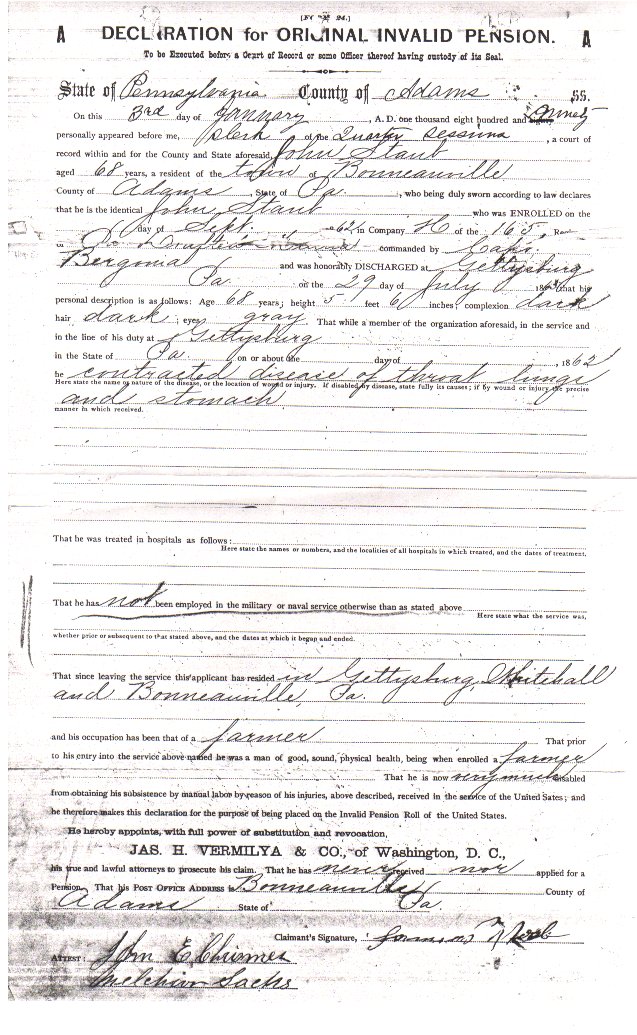 A DECLARATION for ORIGINAL INVALID PENSION. A
To be Executed before a Court of Record or some Officer thereof having custody of its Seal.
State of Pennsylvania County of Adams SS.
On this 3rd day of January, A. D. one thousand eight hundred and eighty ninety
personally appeared before me, clerk of the Quarter Sessions, a court of
record within and for the County and State aforesaid, John Staub
aged 68 years, a resident of the town of Bonneauville
County of Adams, State of Pa., who being duly sworn according to law declares
that he is the identical John Staub who was ENROLLED on the
day of Sept. 1862, in Company H of the 165,
Drafted commanded by Capt.
Bergonia and was honorably DISCHARGED at Gettysburg
Pa. on the 29 day of July 186 that his
personal description is as follows: Age 68 years; height 5 feet 6 inches; complexion dark
hair dark; eyes gray. That while a member of the organization aforesaid, in the service and
in the line of his duty at Gettysburg
in the State of Pa on or about the day of , 1862
he contracted disease of throat lungs
Here state the name or nature of the disease, or the location of wound or injury. If disabled by disease, state fully its causes; if by wound or injury the precise
and stomach
manner in which received.
That he was treated in hospitals as follows:
Here state the names or numbers, and the localities of all hospitals in which treated, and the dates of treatment.
That he has not been employed in the military or naval service otherwise than as stated above
Here state what the service was,
whether prior or subsequent to that stated above, and the dates at which it began and ended.
That since leaving the service this applicant has resided in Gettysburg, Whitehall
and Bonneauville, Pa.
and his occupation has been that of a farmer That prior
to his entry into the service above named he was a man of good, sound, physical health, being when enrolled a farmer
That he is now very much disabled
from obtaining his subsistence by manual labor by reason of his injuries, above described, received in the service of the United States; and
he therefore makes this declaration for the purpose of being placed on the Invalid Pension Roll of the United States.
He hereby appoints, with full power of substitution and revocation,
JAS. H. VERMILYA & CO., of Washington, D. C.,
his true and lawful attorneys to prosecute his claim. That he has never received nor applied for a
Pension. That his POST OFFICE ADDRESS is Bonneauville County of
Adams State of Pa.
Claimant's Signature,
ATTEST: John E. Chrismer
Melchior Sachs